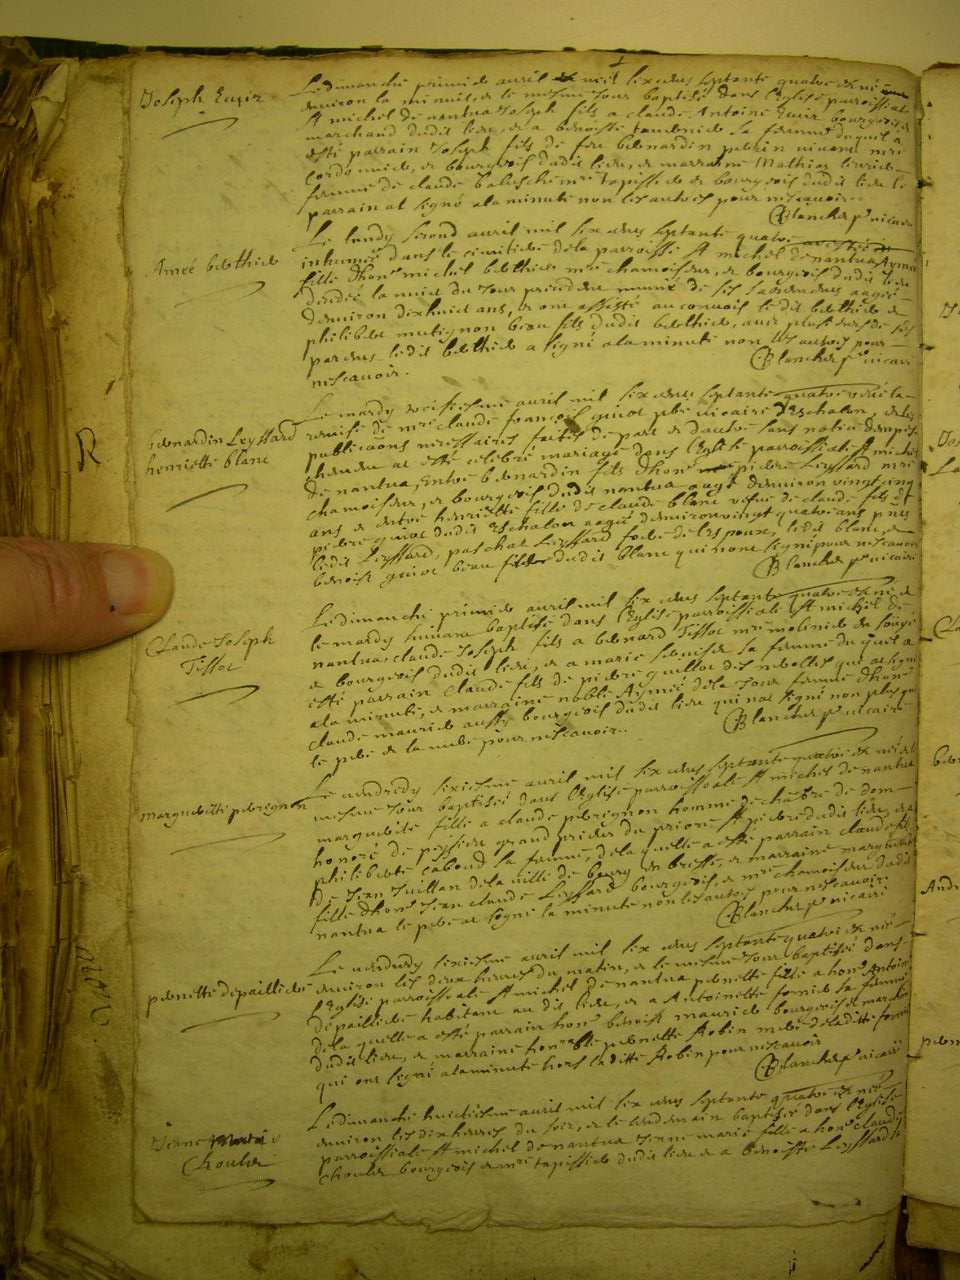 Joseph
Le dimanche premier avril mil six cens septante quatre est né
environ la minuit, et le mesme jour baptisé dans l'eglise parroissiale
St michel de nantua Joseph fils a claude Antoine bourgeois et
marchand dudit lieu, et a benoiste sa femme duquel a
esté parrain Joseph fils de feu bernardin vivant mre
cordonnier, et bourgeois dudit lieu, et marraine Mathias
femme de claude mre tapissier et bourgeois dudit lieu le
parrain at signé a la minute non les autres pour ne scavoir
Blanchet pre vicaire
Aimeé berthier
Le lundy second avril mil six cens septante quatre a esté
inhumeé dans le cimitiere de la parroisse St michel de nantua Ayme
fille d'honr michel berthier mre chamoiseur, et bourgeois dudit lieu
decedeé la nuict du jour precedent munie de ses sacremens aageé
d'environ dix huict ans, et ont assisté au convois ledit berthier et
philibert mutignon beau fils dudit berthier, avec plusieurs de ses
parens ledit berthier a signé a la minute non les autres pour
ne scavoir.
Blanchet pre vicaire
R
bernardin Leyssard
henriette blanc
Le mardy troisiesme avril mil six cens septante quatre veüe la
remise de mre claude françois guiot pbre vicaire d'Eschalon, et les
publicaõns necessaires faites de part et d'autre sans notice d'empes
chement at esté celebré mariage dans l'eglise parroissiale St michel
de nantua, entre bernardin fils d'honr pierre Leyssard mre
chamoiseur, et bourgeois dudit nantua aagé d'environ vingt cinq
ans et entre henriette fille de claude blanc vefve de claude fils de
pierre guiot dudit Eschalon aageé d'environ vingt quatre ans pnts
ledit Leyssard, paschal Leyssard frere de l'espoux, ledit blanc, et
benoist guiot beau filz dudit blanc qui n'ont signé pour ne scavoir
Blanchet pre vicaire
Claude Joseph
Tissot
Le dimanche premier avril mil six cens septante quatre est né et
le mardy suivant baptisé dans l'eglise parroissiale St michel de
nantua, claude Joseph fils a bernard Tissot mre molinier
et bourgeois dudit lieu, et a marie sa femme duquel a
esté parrain claude fils de pierre guillot des neyrolles qui at signé
a la minute, et marraine noble Aymeé de la Tour femme d'honr
claude maurier aussy bourgeois dudit lieu qui nat signé non plus que
le pere et la mere pour ne scavoir.
Blanchet pre vicaire
marguerite peregnon
Le vendredy sixiesme avril mil six cens septante quatre est neé et le
mesme jour baptiseé dans l'eglise parroissiale St michel de nantua
marguerite fille a claude peregnon homme de chãbre de dom
honoré de grand prieur du prioré St pierre dudit lieu, et a
philiberte caboud sa femme, de laquelle a esté parrain claude fils
de Jean Juillan de la ville de bourg en bresse, et marraine marguerite
fille d'honr Jean claude Leyssard bourgeois, et mre chamoiseur dudit
nantua le pere at signé la minute non les autres pour ne scavoir.
Blanchet pre vicaire
pernette depaillier
Le vendredy sixiesme avril mil six cens septante quatre est neé
environ les deux heures du matin, et le mesme jour baptiseé dans
l'eglise parroissiale St michel de nantua pernette fille a honr Antoine
depaillier habitant au dit lieu, et a Antoinette fornier sa femme
de laquelle a esté parrain honr benoist maurier bourgeois et marchand
dudit lieu, et marraine honorable pernette Robin mere de la ditte fornier
qui ont signé a la minute hors laditte Robin pour ne scavoir
Blanchet pre vicaire
Jeane marie
Chouler
Le dimanche huictiesme avril mil six cens septante quatre est neé
environ les dix heures du soir, et le lendemain baptiseé dans l'eglise
parroissiale St michel de nantua Jeane marie fille a honr claude
chouler bourgeois et mre tapissier dudit lieu et a benoiste Leyssard